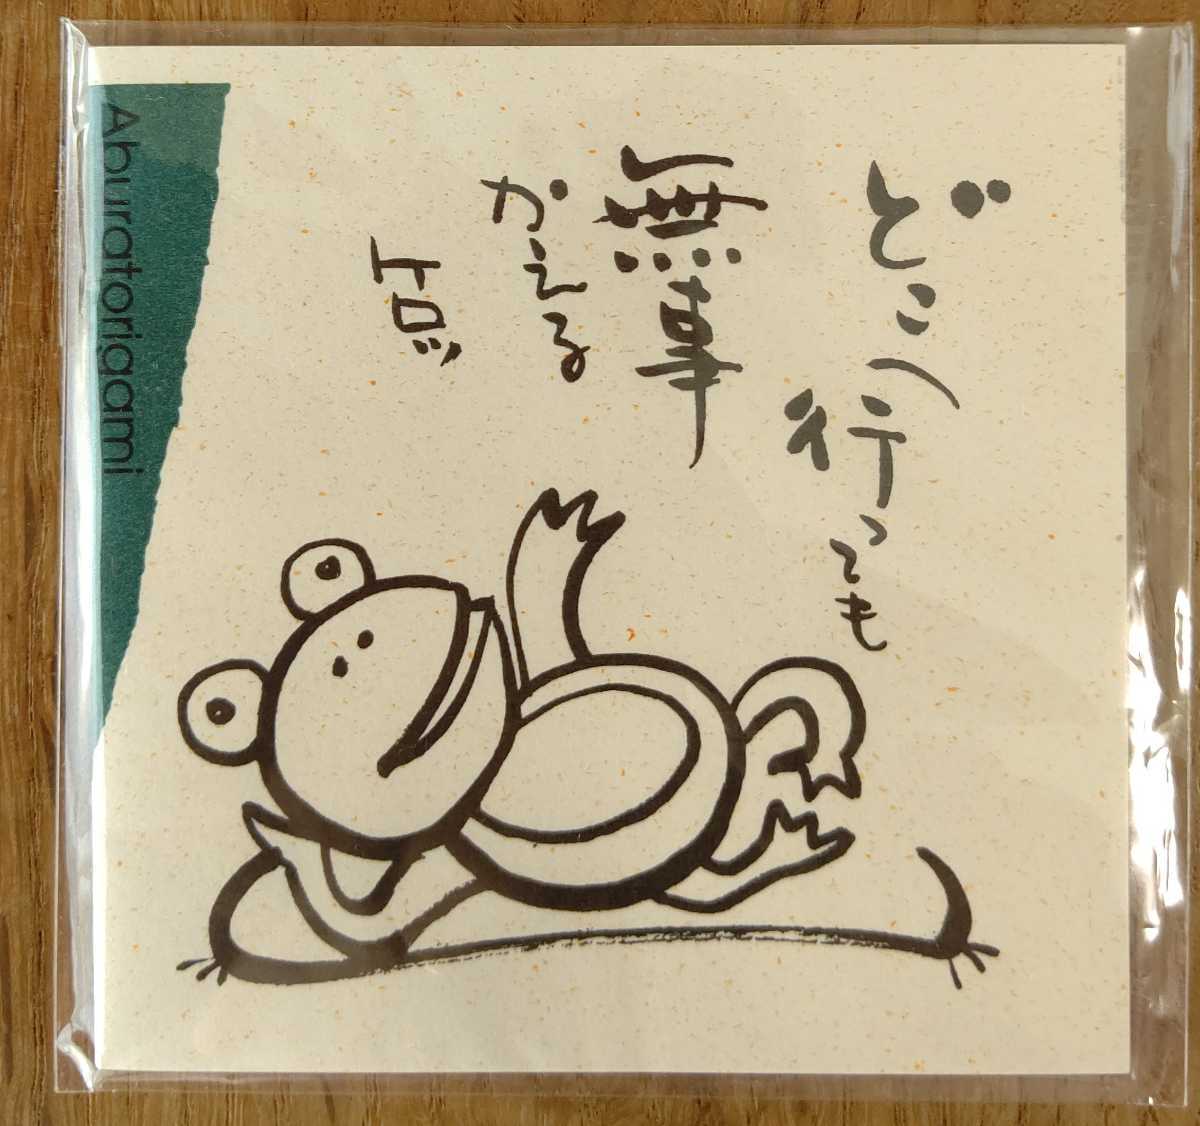 どこへ行っても
無事
かえる
Aburatorigami